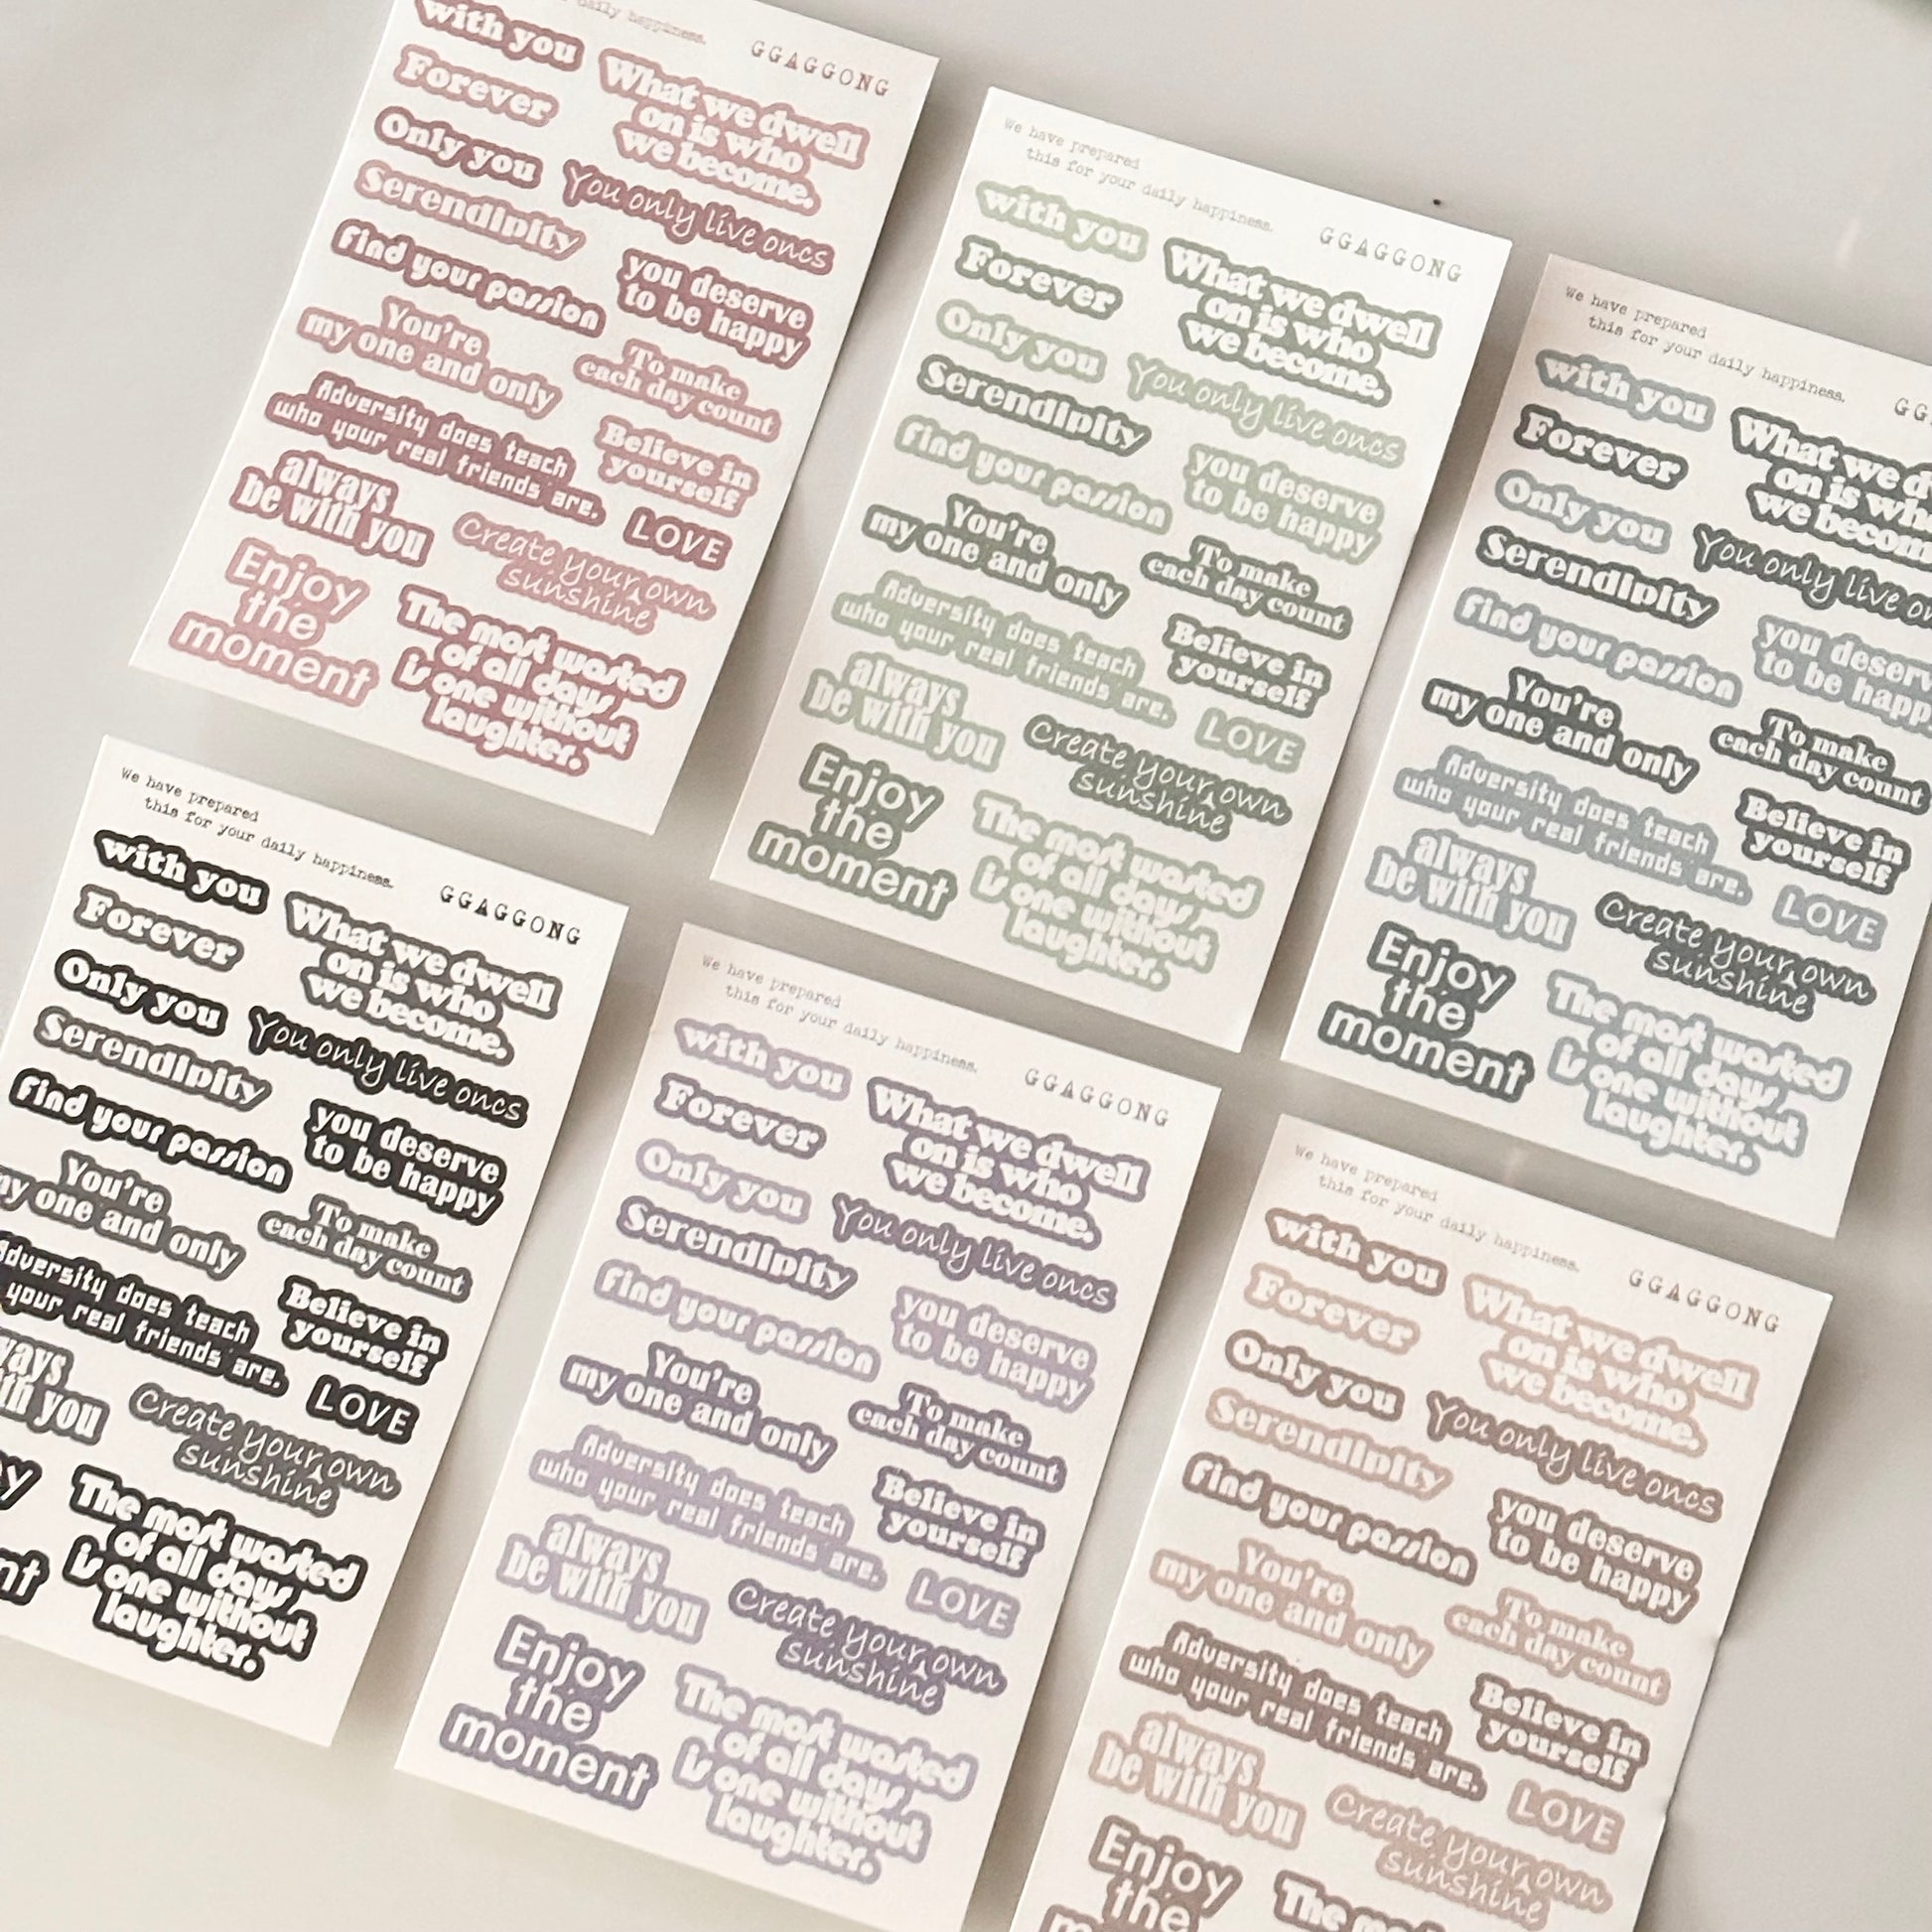 with you
daily happiness.
GGAGGONG
Forever
What we dwell
on is who
we become.
Only you
You only live oncs
Serendipity
find your passion
you deserve
to be happy
You're
my one and only
To make
each day count
Adversity does teach
who your real friends are.
Believe in
yourself
always
be with you
LOVE
Create your own
sunshine
Enjoy
the
moment
The most wasted
of all days,
is one without
laughter.
We have prepared
this for your daily happiness.
GGAGGONG
with you
Forever
What we dwell
on is who
we become.
Only you
You only live oncs
Serendipity
find your passion
you deserve
to be happy
You're
my one and only
To make
each day count
Adversity does teach
who your real friends are.
Believe in
yourself
always
be with you
LOVE
Create your own
sunshine
Enjoy
the
moment
The most wasted
of all days,
is one without
laughter.
We have prepared
this for your daily happiness.
with you
Forever
What we
on is
we
Only you
You only live
Serendipity
find your passion
you
to be
You're
my one and only
To make
each day count
Adversity does teach
who your real friends are.
Believe in
yourself
always
be with you
LOVE
Create your own
sunshine
Enjoy
the
moment
The most wasted
of all days,
is one without
laughter.
We have prepared
this for your daily happiness.
GGAGGONG
with you
Forever
What we dwell
on is who
we become.
Only you
You only live oncs
Serendipity
find your passion
you deserve
to be happy
You're
one and only
To make
each day count
does teach
your real friends are.
Believe in
yourself
you
LOVE
Create your own
sunshine
The most wasted
of all days,
is one without
laughter.
We have prepared
this for your daily happiness.
GGAGGONG
with you
Forever
What we dwell
on is who
we become.
Only you
You only live oncs
Serendipity
find your passion
you deserve
to be happy
You're
my one and only
To make
each day count
Adversity does teach
who your real friends are.
Believe in
yourself
always
be with you
LOVE
Create your own
sunshine
Enjoy
the
moment
The most wasted
of all days,
is one without
laughter.
We have prepared
this for your daily happiness.
GGAGGONG
with you
Forever
What we dwell
on is who
we become.
Only you
You only live oncs
Serendipity
find your passion
you deserve
to be happy
You're
my one and only
To make
each day count
Adversity does teach
who your real friends are.
Believe in
yourself
always
be with you
LOVE
Create your own
sunshine
Enjoy
the
The most